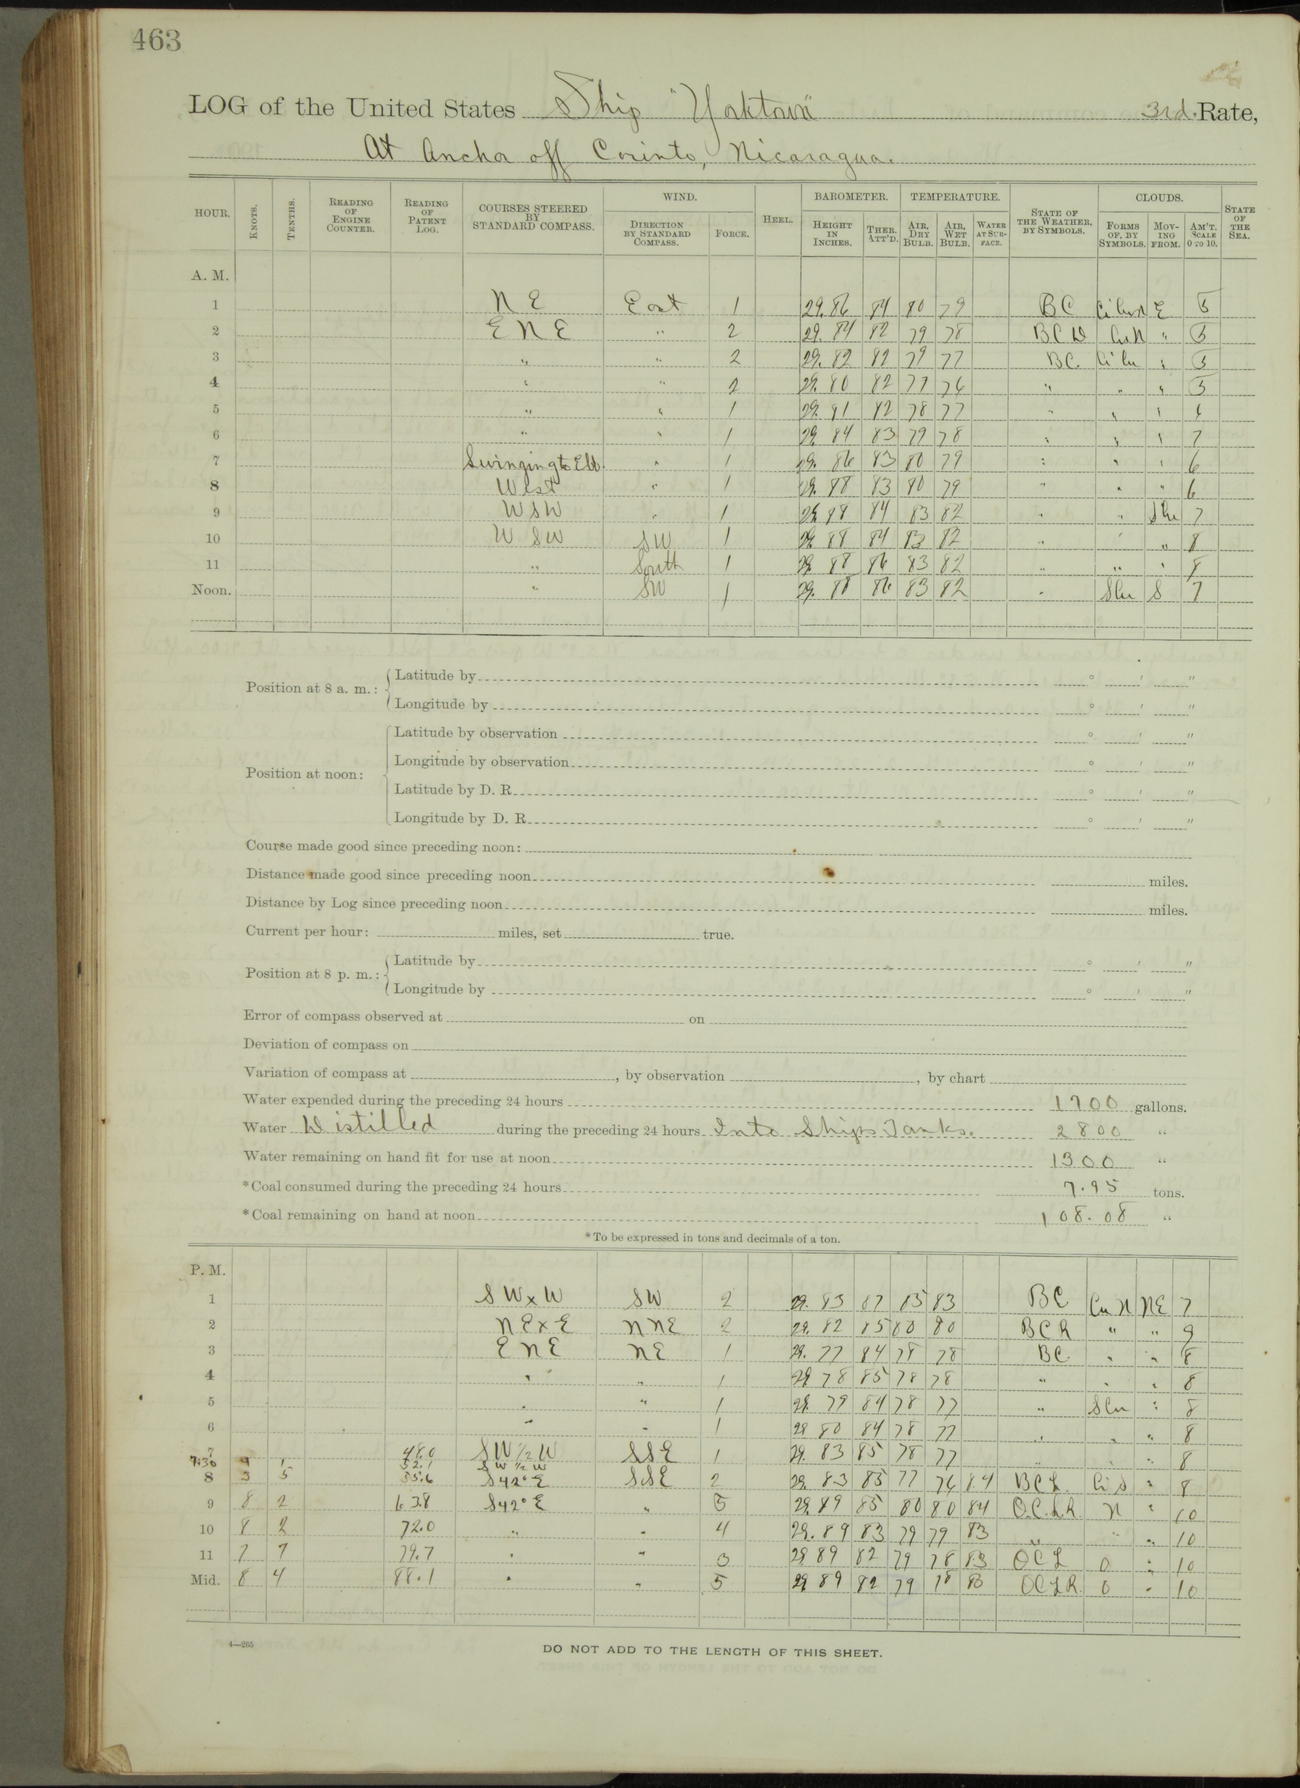 463
LOG of the United States Ship "Yorktown" 3rd. Rate,
At Anchor off Corinto, Nicaragua.
HOUR. KNOTS. TENTHS. READING OF ENGINE COUNTER. READING OF PATENT LOG. COURSES STEERED BY STANDARD COMPASS. WIND. DIRECTION BY STANDARD COMPASS. FORCE. HEEL. BAROMETER. HEIGHT IN INCHES. THER. ATT'D. TEMPERATURE. AIR, DRY BULB. AIR, WET BULB. WATER AT SURFACE. STATE OF THE WEATHER, BY SYMBOLS. CLOUDS. FORMS OF, BY SYMBOLS. MOVING FROM. AM'T. SCALE 0 TO 10. STATE OF THE SEA.
A. M.
1 N E East 1 29.86 84 80 79 BC E 5
2 E N E " 2 29.84 82 79 78 CuN " 5
3 " " 2 29.82 82 79 77 BC Ci Cu " 5
4 " " 2 29.80 82 77 76 " " " 5
5 " " 1 29.81 82 78 77 " " "
6 " " 1 29.84 83 79 78 " " " 7
7 Swinging to Ebb. " 1 29.86 83 80 79 " " " 6
8 West " 1 29.88 83 80 79 " " " 6
9 WSW " 1 29.88 84 83 82 " " 7
10 W SW SW 1 29.88 84 83 82 " " " 8
11 " South 1 29.88 86 83 82 " " " 8
Noon. " SW 1 29.88 86 83 82 " Scu S 7
Position at 8 a. m.: Latitude by ° ' "
Longitude by ° ' "
Position at noon: Latitude by observation ° ' "
Longitude by observation ° ' "
Latitude by D. R. ° ' "
Longitude by D. R. ° ' "
Course made good since preceding noon:
Distance made good since preceding noon miles.
Distance by Log since preceding noon miles.
Current per hour: miles, set true.
Position at 8 p. m.: Latitude by ° ' "
Longitude by ° ' "
Error of compass observed at on
Deviation of compass on
Variation of compass at , by observation , by chart
Water expended during the preceding 24 hours 1700 gallons.
Water Distilled during the preceding 24 hours Into Ships Tanks. 2800 "
Water remaining on hand fit for use at noon 1300 "
*Coal consumed during the preceding 24 hours 7.95 tons.
*Coal remaining on hand at noon 108.08 "
*To be expressed in tons and decimals of a ton.
P. M.
1 SWxW SW 2 29.83 87 85 83 BC CuN NE 7
2 NExE NNE 2 29.82 85 80 80 BCR " " 9
3 ENE NE 1 29.77 84 78 78 BC " " 8
4 " " 1 29.78 85 78 78 " " " 8
5 " " 1 29.79 84 78 77 " Scu " 8
6 " " 1 29.80 84 78 77 " " " 8
7 48.0 SW1/2W SSE 1 29.83 85 78 77 " " " 8
7:30 4 1 52.1 SW1/2W
8 3 5 55.6 S42°E SSE 2 29.83 85 77 76 84 BCL " 8
9 8 2 63.8 S42°E " 5 29.89 85 80 80 84 O.C.L.R. N " 10
10 8 2 72.0 " " 4 29.89 83 79 79 83 " " " 10
11 7 7 79.7 " " 3 29.89 82 79 78 83 OCL O " 10
Mid. 8 4 88.1 " " 5 29.89 82 79 78 83 OCLR. O " 10
4—265
DO NOT ADD TO THE LENGTH OF THIS SHEET.